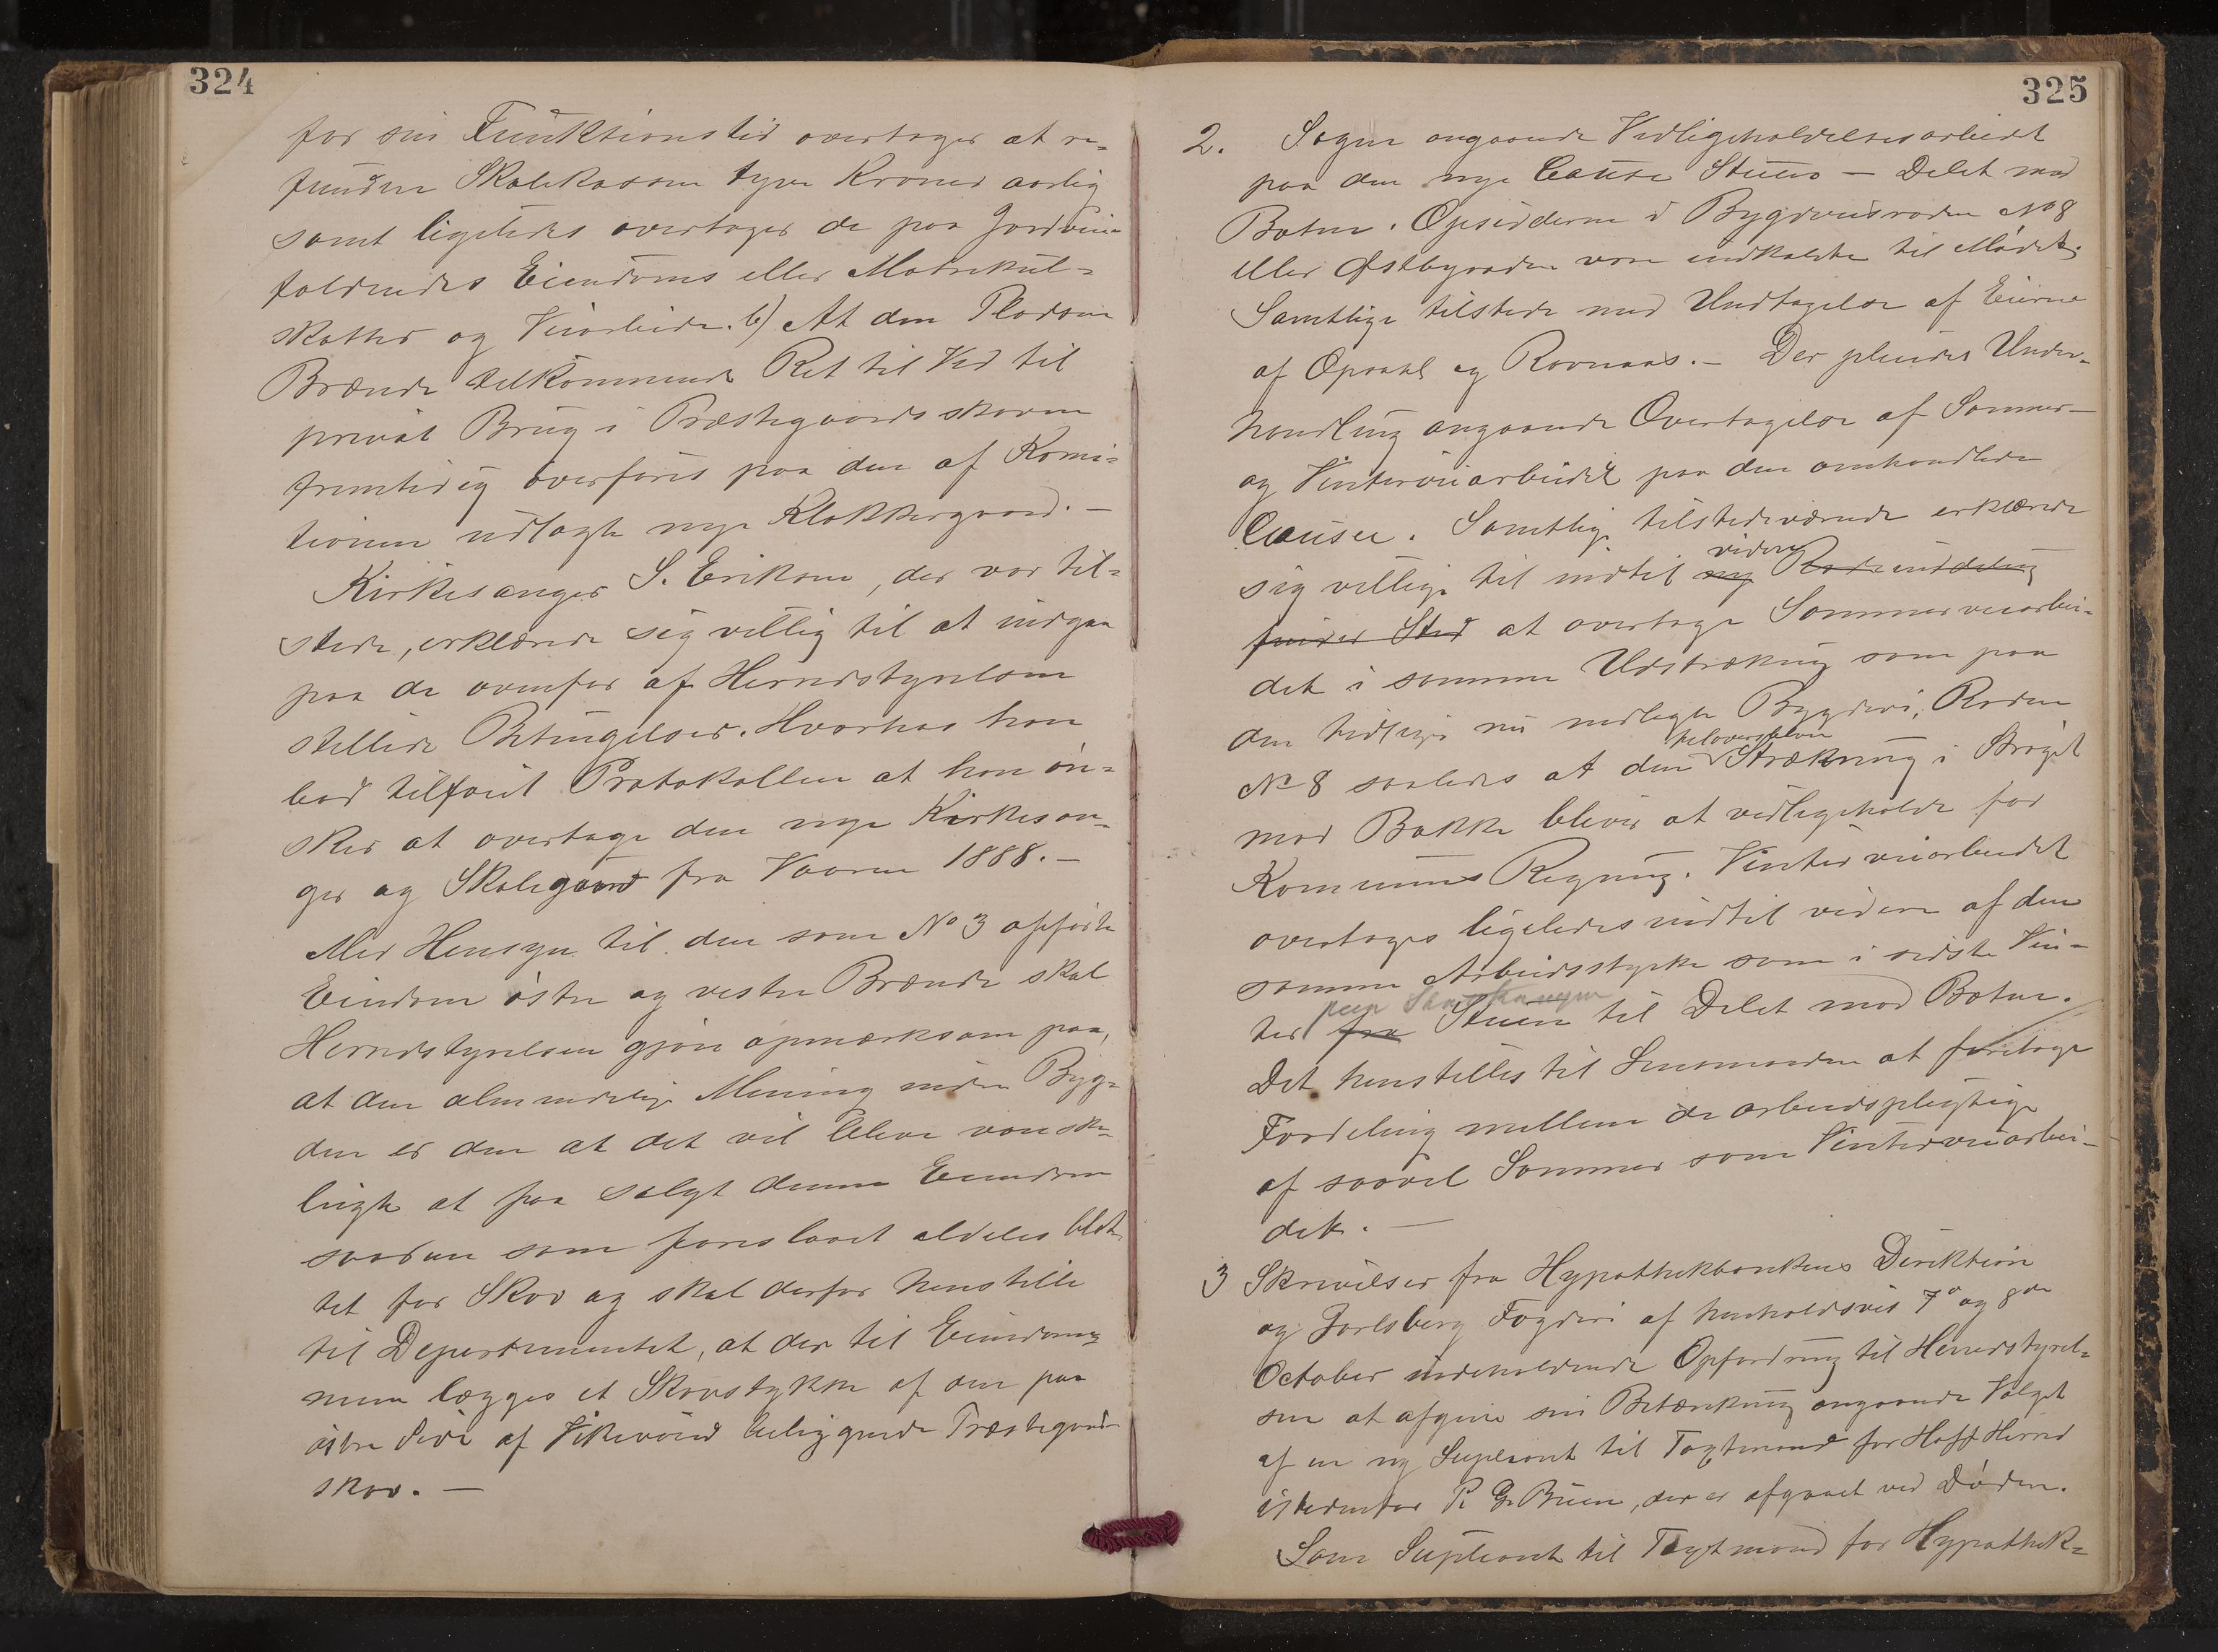 324
for sin Funktionstid overtager at re-
fundere Skolekassen tyve Kroner aarlig
samt ligeledes overtager de paa Jordvein
faldendes Eiendoms eller Matrikul-
skatter og Veiarbeide. b) At den Pladsen
Brænde tilkommende Ret til Ved til
privat Brug i Præstegaardsskoven
fremtidig overføres paa den af Komi-
tionen udlagte nye Klokkergaard. —
Kirkesanger S. Eriksen, der var til-
stede, erklærede sig villig til at indgaa
paa de ovenfor af Herredsstyrelsen
stillede Betingelser. Hvorhos han
bad tilført Protokollen at han øn-
sker at overtage den nye Kirkesan-
ger og Skolegaard fra Vaaren 1888. —
Med Hensyn til den som No 3 opførte
Eiendom østre og vestre Brænde skal
Herredsstyrelsen gjøre opmærksom paa,
at den almindelige Mening inden Byg-
den er den at det vil blive vanske-
ligt at faa solgt denne Eiendom
saadan som foreslaaet aldeles blot-
tet for Skov og skal derfor henstille
til Departementet, at der til Eiendom-
men lægges et Skovstykke af den paa
østre Side af beliggende Præstegaards
skov. —
325
2. Sagen angaaende Vedligeholdelsesarbeidet
paa den nye Causé Stuen — Delet mod
Botne. Opsidderne i Bygdeveisroden No 8
eller Østbyroden vare indkaldte til Mødet.
Samtlige tilstede med Undtagelse af Eierne
af Opsahl og Rovnaas. — Der pleiedes Under-
handling angaaende Overtagelse af Sommer-
og Vinterveiarbeidet paa den omhandlede
Causee. Samtlige tilstedeværende erklærede
videre
sig villige til indtil ny Rodeinddeling
finder Sted at overtage Sommerveiarbei-
det i samme Udstrækning som paa
den tidligere nu nedlagte Bygdevei, Roden
tiloversblevne
No 8 saaledes at den Strækning i Strøget
mod Bakke bliver at vedligeholde for
Kommunens Regning. Vinterveiarbeidet
overtages ligeledes indtil videre af den
samme Arbeidsstyrke som i sidste Vin-
ter fra Stuen til Delet mod Botne.
Det henstilles til Lensmanden at foretage
Fordeling mellem de arbeidspligtige
af saavel Sommer som Vinterveiarbei-
det. —
3 Skrivelser fra Hypothekbankens Direktion
og Jarlsberg Fogderi af henholdsvis 7de og 8de
October indeholdende Opfordring til Herredsstyrel-
sen at afgive sin Betænkning angaaende Valget
af en ny Supleant til Taxtmand for Hoff Herred
istedenfor P. G. Buen, der er afgaaet ved Døden.
Som Supleant til Taxtmand for Hypothek-